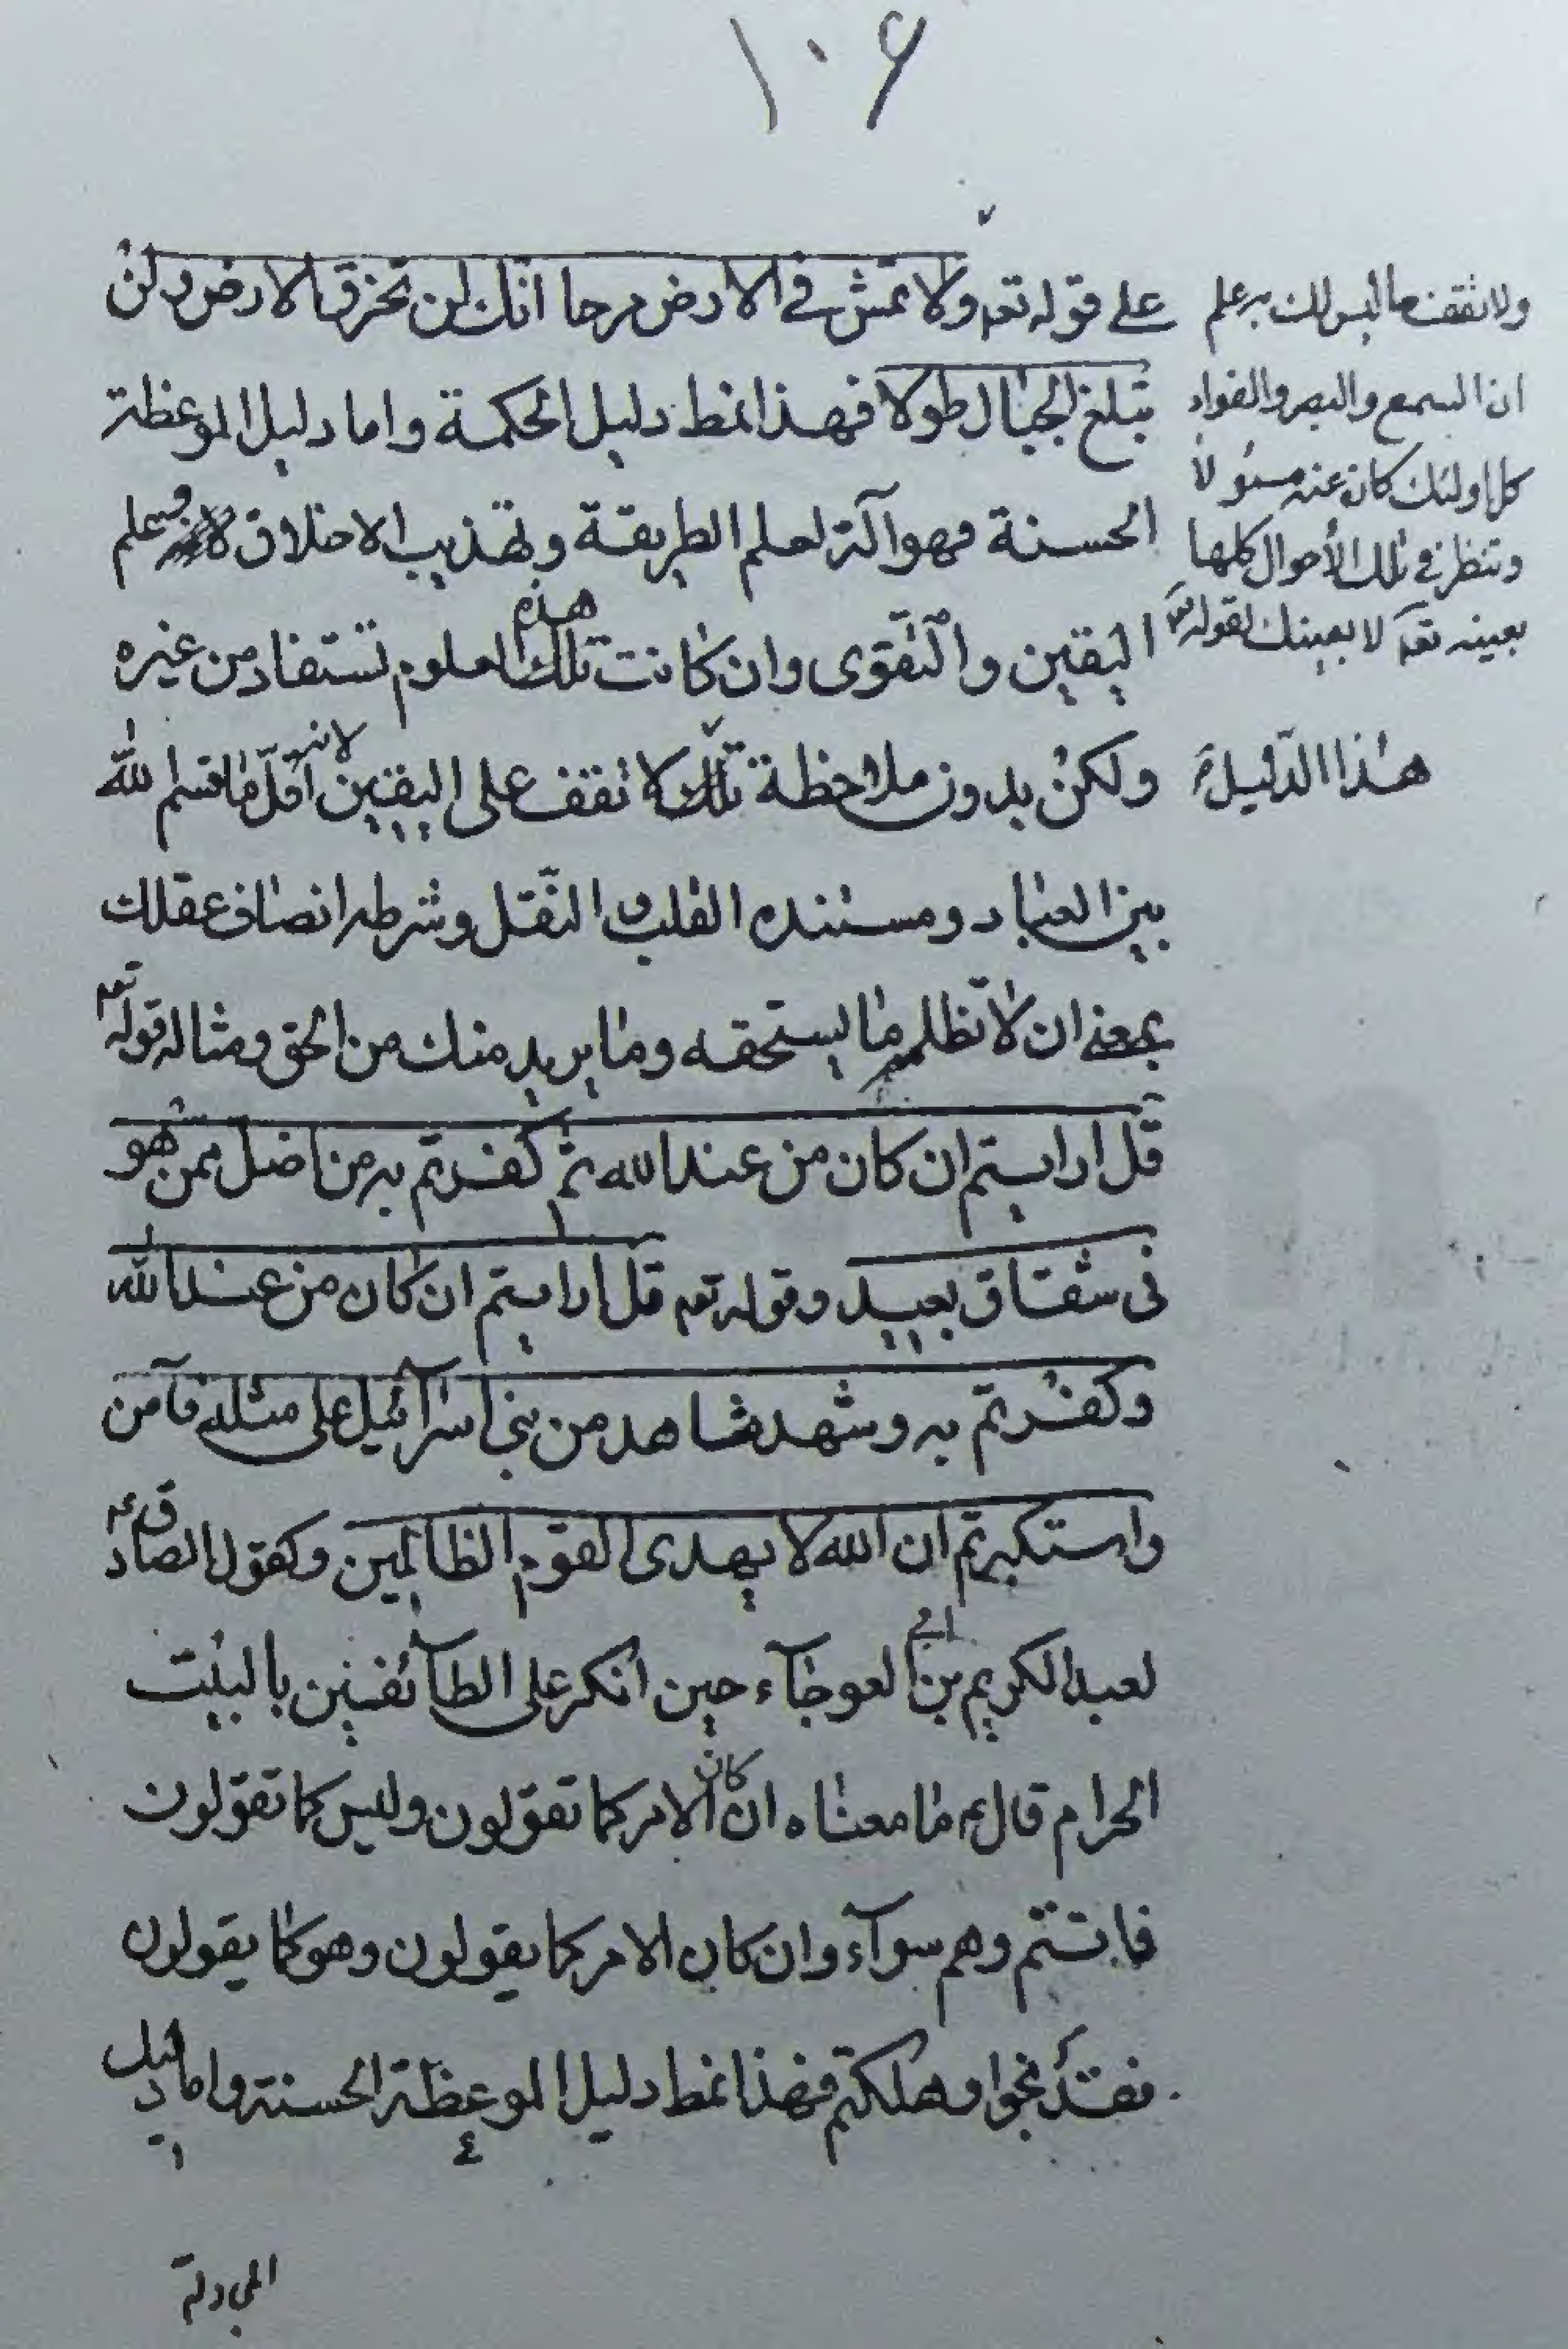 ١٠۶
على قوله تعم ولا تمش فى الارض مرحا انك لن تخرق الارض ولن
تبلغ الجبال طولا فهذا نمط دليل الحكمة واما دليل الموعظة
الحسنة فهو آلة لعلم الطريقة وتهذيب الاخلاق وعلم
اليقين والتقوى وان كانت تلك هذه العلوم تستفاد من غيره
ولكن بدون ملاحظة تلك لا تقف على اليقين لانه اقل ما قسم الله
بين العباد ومستنده القلب والنقل وشرطه انصاف عقلك
بمعنى ان لا تظلمه ما يستحقه وما يريد منك من الحق ومثاله قوله تعم
قل ارايتم ان كان من عند الله ثم كفرتم به من اضل ممن هو
فى شقاق بعيد وقوله تعم قل ارايتم ان كان من عند الله
وكفرتم به وشهد شاهد من بنى اسرآئيل على مثله فآمن
واستكبرتم ان الله لا يهدى القوم الظالمين وكقول الصادق ع
لعبد الكريم بن ابى العوجآء حين انكر على الطآئفين بالبيت
الحرام قال ع ما معناه ان كان الامر كما تقولون وليس كما تقولون
فانتم وهم سوآء وان كان الامر كما يقولون وهو كما يقولون
فقد نجوا وهلكتم فهذا نمط دليل الموعظة الحسنة واما دليل
المجادلة
ولا تقف ما ليس لك به علم
ان السمع والبصر والفواد
كل اولئك كان عنه مسئولا
وتنظر فى تلك الأحوال كلها
بعينه تعم لا بعينك لقوله
هذا الدليل